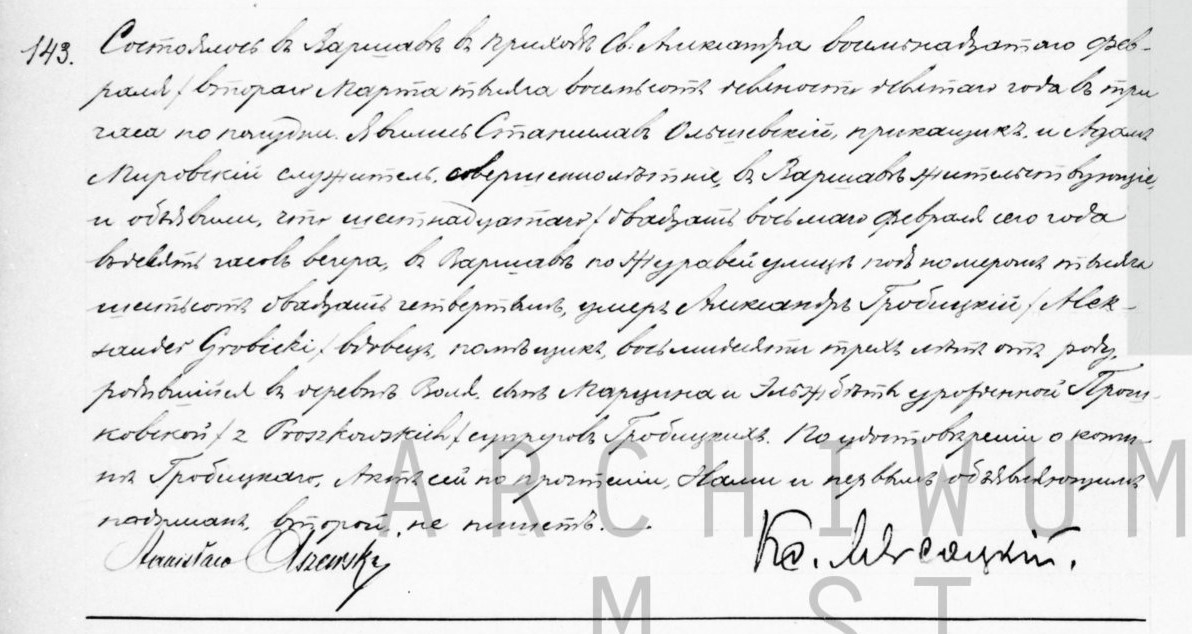 143. Состоялось въ Варшавѣ въ приходѣ Св. Александра восьмнадцатаго фев-
раля / втораго Марта тысяча восемьсотъ девяносто девятаго года въ три
часа по полудни. Явились Станиславъ Ольшевскій, прикащикъ, и Адамъ
Мировскій служитель, совершеннолѣтніе, въ Варшавѣ жительствующіе,
и объявили, что шестнадцатаго / двадцать восьмаго февраля сего года
въ девять часовъ вечера, въ Варшавѣ по Журавей улицѣ подъ номеромъ тысяча
шестьсотъ двадцать четвертымъ, умеръ Александръ Гробицкій / Alek-
sander Grobicki / вдовецъ, помѣщикъ, восьмидесяти трехъ лѣтъ отъ роду,
родившійся въ деревнѣ Воля, сынъ Марцина и Эльжбеты урожденной Прош-
ковской / z Proszkowskich / супруговъ Гробицкихъ. По удостовѣреніи о кончи-
нѣ Гробицкаго, Актъ сей по прочтеніи, Нами и первымъ объявляющимъ
подписанъ, второй не пишетъ.
Stanisław Olszewski
Кс.
ARCHIWUM
M ST